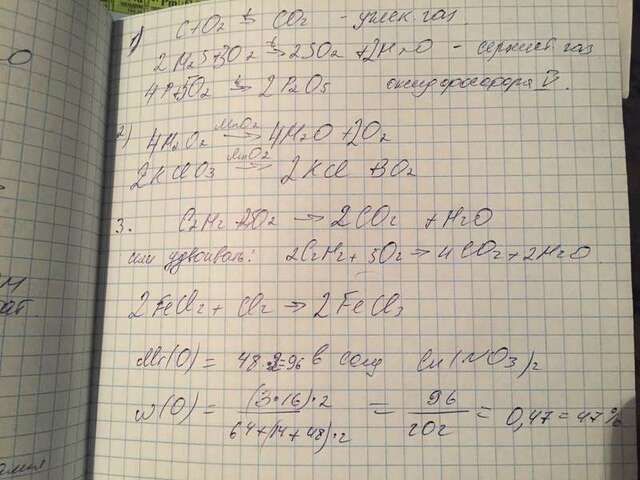 1) C+O2 t→ CO2 - углек. газ
2H2S+3O2 t→ 2SO2 +2H2O - сернист. газ
4P+5O2 t→ 2P2O5 оксид фосфора V.
2) 4H2O2 MnO2→ 4H2O +2O2
2KClO3 MnO2→ 2KCl +3O2
3. C2H2 +2,5O2 → 2CO2 +H2O
или удвоивать: 2C2H2 + 5O2 → 4CO2 +2H2O
2FeCl2 + Cl2 → 2FeCl3
Mr(O) = 48·2=96 в соли Cu(NO3)2
w(O) = (3·16)·2 / 64+(14+48)·2 = 96 / 202 = 0,47 = 47%